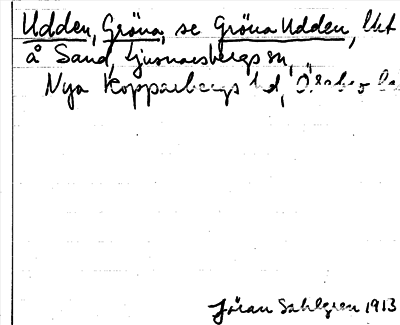 Udden, Gröna, se Gröna Udden, Utt
å Sand, Ljusnarsbergs sn,
Nya Kopparbergs hd, Örebro la
Jöran Sahlgren 1913